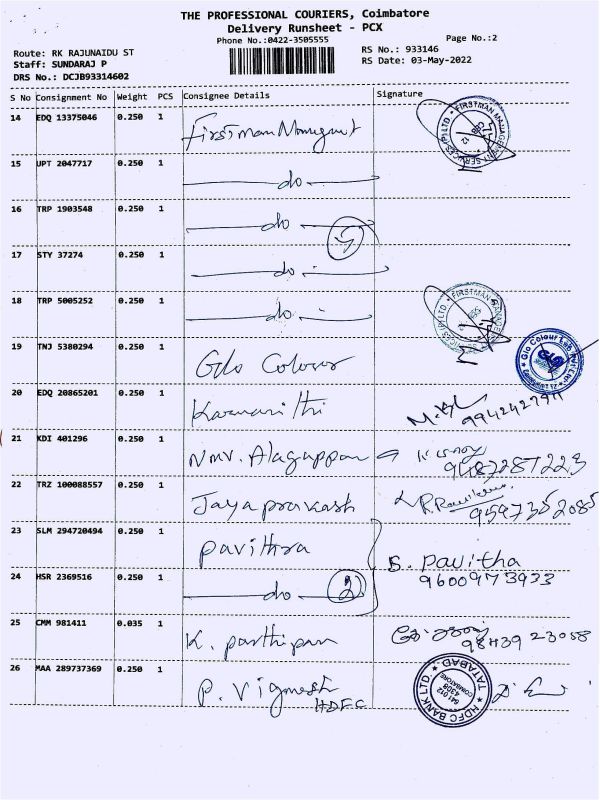 THE PROFESSIONAL COURIERS, Coimbatore
Delivery Runsheet - PCX
Phone No.:0422-3505555
Page No.:2
Route: RK RAJUNAIDU ST
RS No.: 933146
Staff: SUNDARAJ P
RS Date: 03-May-2022
DRS No.: DCJB93314602
S No Consignment No Weight PCS Consignee Details Signature
14 EDQ 13375046 0.250 1 Firstman
15 UPT 2047717 0.250 1 do
16 TRP 1903548 0.250 1 do
17 STY 37274 0.250 1 do
18 TRP 5005252 0.250 1 do
19 TNJ 5380294 0.250 1 Glo Colour
20 EDQ 20865201 0.250 1
21 KDI 401296 0.250 1 NMV. Alaguppan 9487287223
22 TRZ 100088557 0.250 1 Jayaprakash
23 SLM 294720494 0.250 1 Pavithra S. Pavitha
24 HSR 2369516 0.250 1 do 2 9600973933
25 CMM 981411 0.035 1 K. Parthipan 98439 23058
26 MAA 289737369 0.250 1 P. Vignesh
HDFC
HDFC BANK LTD. TATABAD
641 012
COIMBATORE
4308